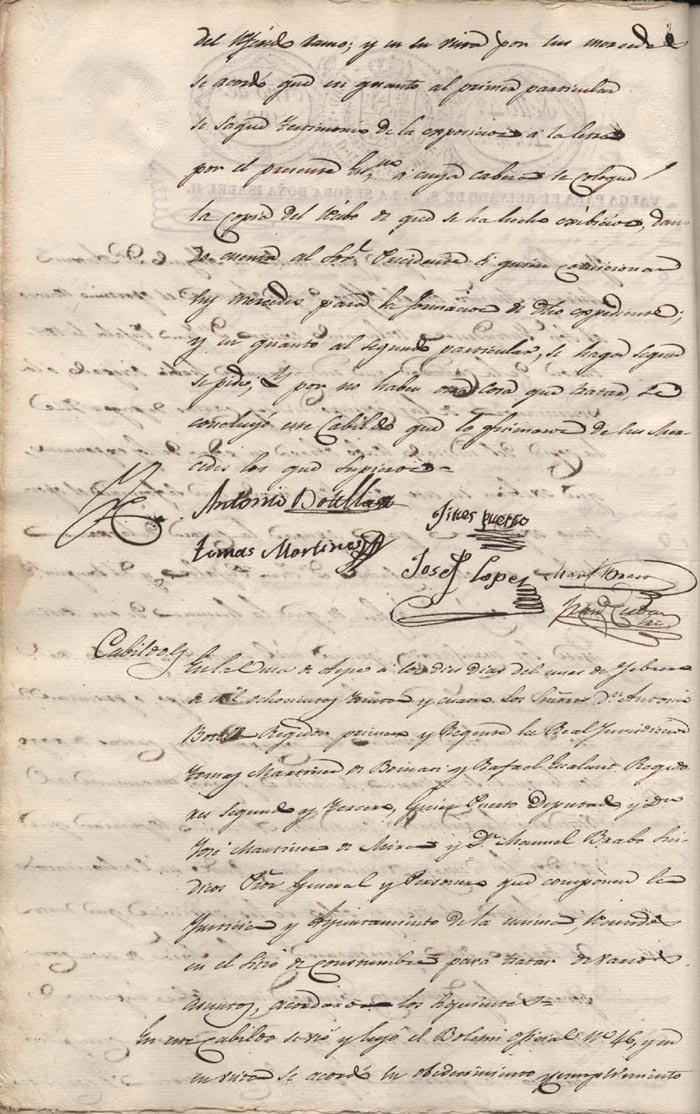 del referido ramo; y en su vista por sus mercedes
se acordó que en quanto al primer particular
se saque testimonio de la exposicion a la letra
por el presente Es.no a cuya cabeza se coloque
la copia del recibo de que se ha hecho exibicion, dan
do cuenta al Sor. Precidente á quien comicionan
sus mercedes para la formacion de dho expediente;
y en quanto al segundo particular, se haga segun
se pide, Y por no haber otra cosa que tratar se
concluyó este Cabildo que lo firmaron de sus Mer
cedes los que supieron=
Antonio Botella
Jines puerto
tomas Martines
Josef Lopez
Man.l Brabo
Cabildo
En la Villa de Aspe á los dies dias del mes de Febrero
de mil ochocientos treinta y cuatro Los Señores Dn. Antonio
Botella Regidor primero y Regente la Real Juridiccion
Tomas Martinez de Boinas y Rafael Regido
res segundo y tercero, Gines Puerto Deputado y Dn.
José Martinez de Mira y Dn. Manuel Brabo Sin
dicos Pror General y Personero que componen la
Justicia y Ayuntamiento de la misma, reunidos
en el sitio de constumbre para tratar de varios
asuntos, acordaron los siguientes=
En este Cabildo se vió y leyó el Boletin oficial No. 46, y en
su vista se acordó su obedecimiento y cumplimiento
VALGA PARA EL REINADO DE S. M. LA SEÑORA DOÑA ISABEL II.